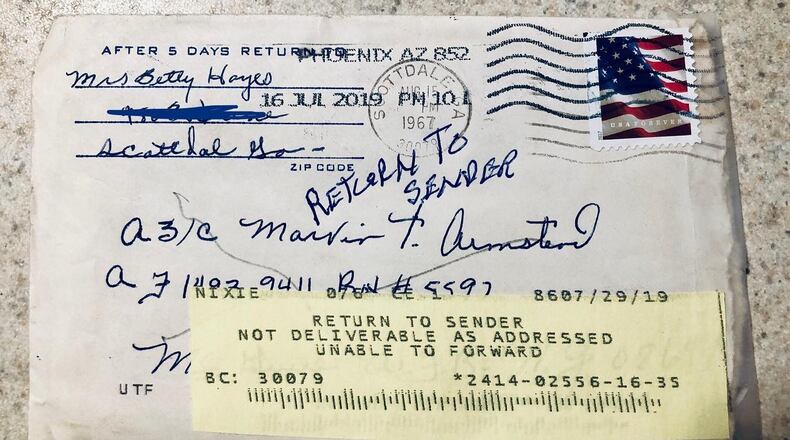 AFTER 5 DAYS RETURN TO
PHOENIX AZ 852
Mrs Betty Hayes
16 JUL 2019 PM 10 L
SCOTTDALE, GA
AUG 15
PM
1967
30079
Scottdal Ga
ZIP CODE
USA FOREVER
RETURN TO
SENDER
A 3/c Marvin T. Armstead
A F 1492 9411 RN # 5597
NIXIE 076 CE 1 8607/29/19
RETURN TO SENDER
NOT DELIVERABLE AS ADDRESSED
UNABLE TO FORWARD
M
UTF
BC: 30079 *2414-02556-16-35